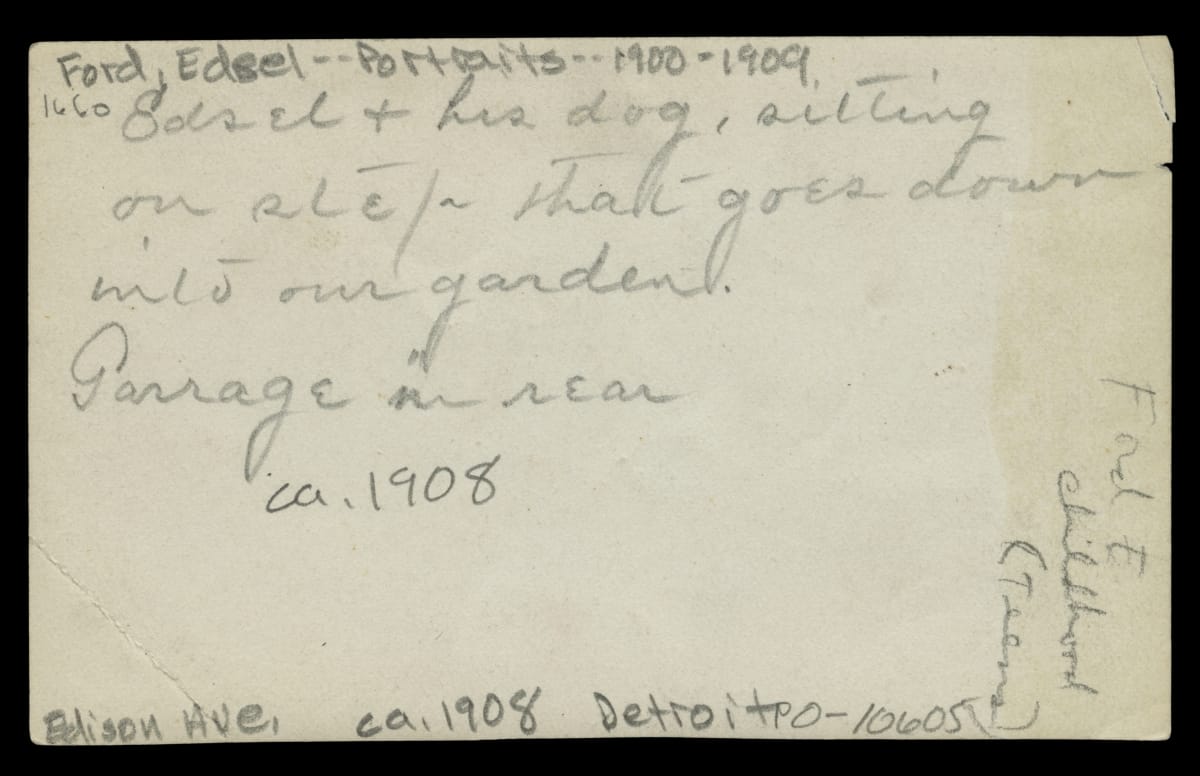 Ford, Edsel--Portraits--1900-1909
1660
Edsel + his dog, sitting
on step that goes down
into our garden.
Garrage in rear
ca. 1908
Ford E
childhood
(Teens)
Edison Ave. ca. 1908 Detroit PO-10605